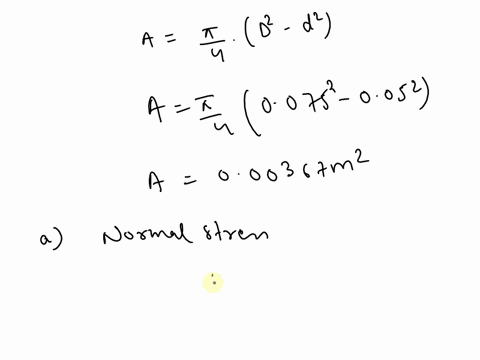 A = π/4 · (D² - d²)
A = π/4 (0.075² - 0.052)
A = 0.00367m²
a) Normal stren